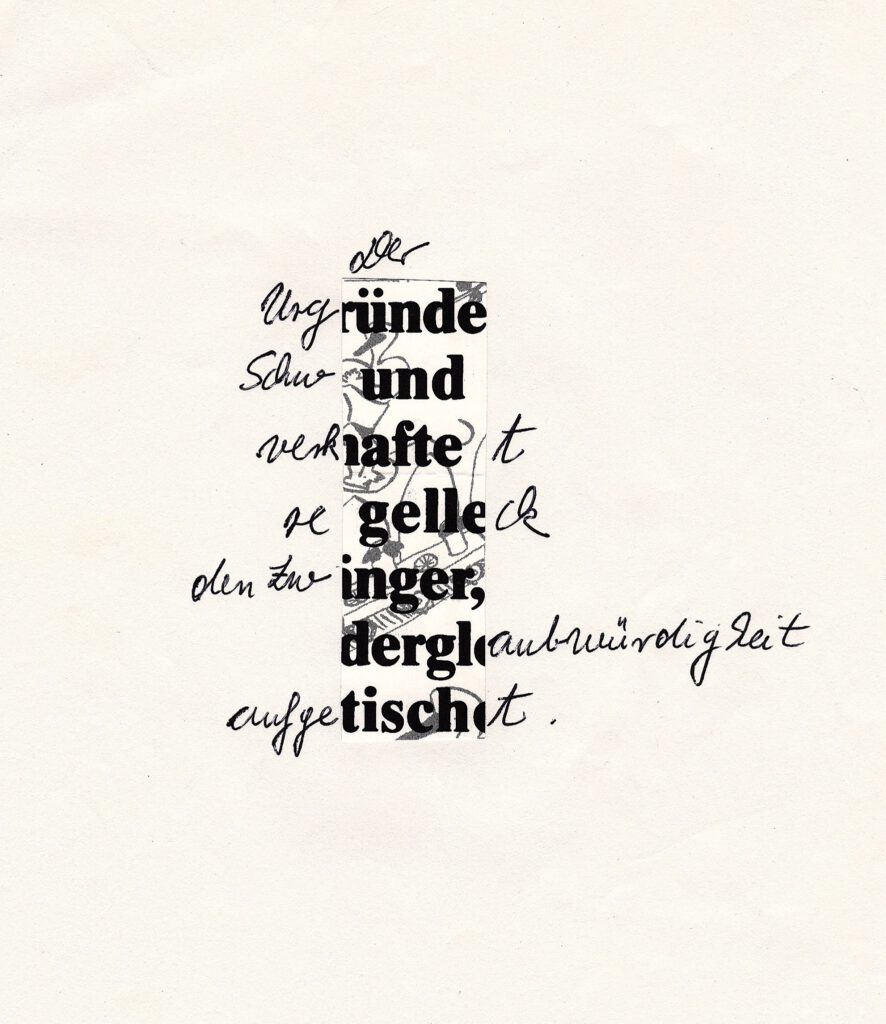 Der
Urgründe
Schwund
verhaftet
regelleck
den Zwinger,
derglaubwürdigkeit
aufgetischt.